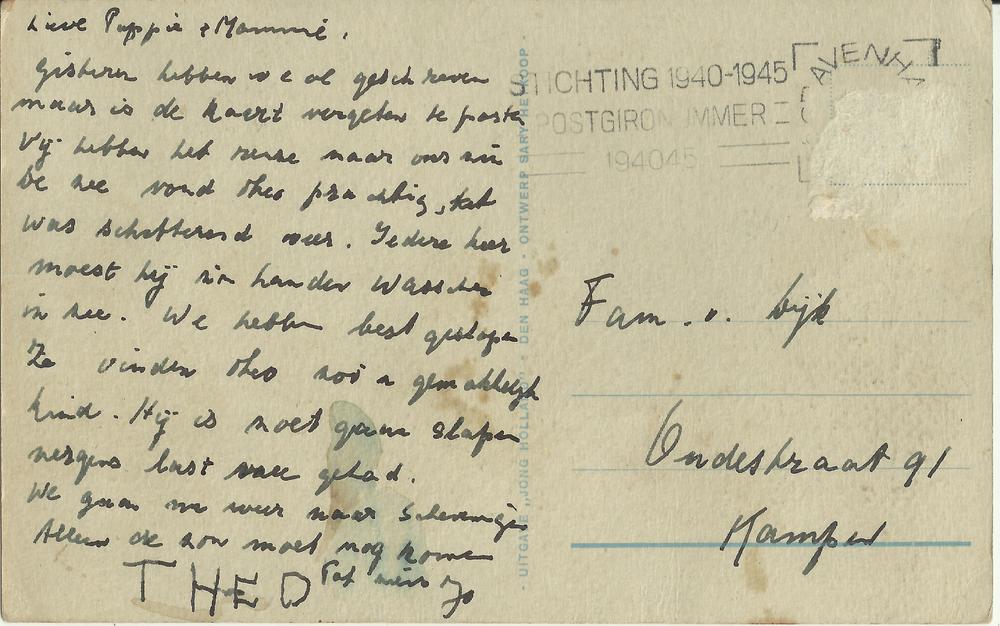 Lieve Pappie & Mammie,
Gisteren hebben we al geschreven
maar is de kaart vergeten te posten
Wij hebben het reuze naar ons zin
De zee vond Theo prachtig, het
was schitterend weer. Iedere keer
moest hij zijn handen wasschen
in zee. We hebben best geslapen
Ze vinden Theo zoo'n gemakkelijk
kind. Hij is zoet gaan slapen
nergens last mee gehad.
We gaan nu weer naar Scheveningen
Alleen de zon moet nog komen
THEO Tot ziens Jo
STICHTING 1940-1945
POSTGIRONUMMER
194045
AVENHA
· UITGAVE „JONG HOLLAND" · DEN HAAG · ONTWERP SARY HEYKOOP ·
Fam. v. Dijk
Oudestraat 91
Kampen